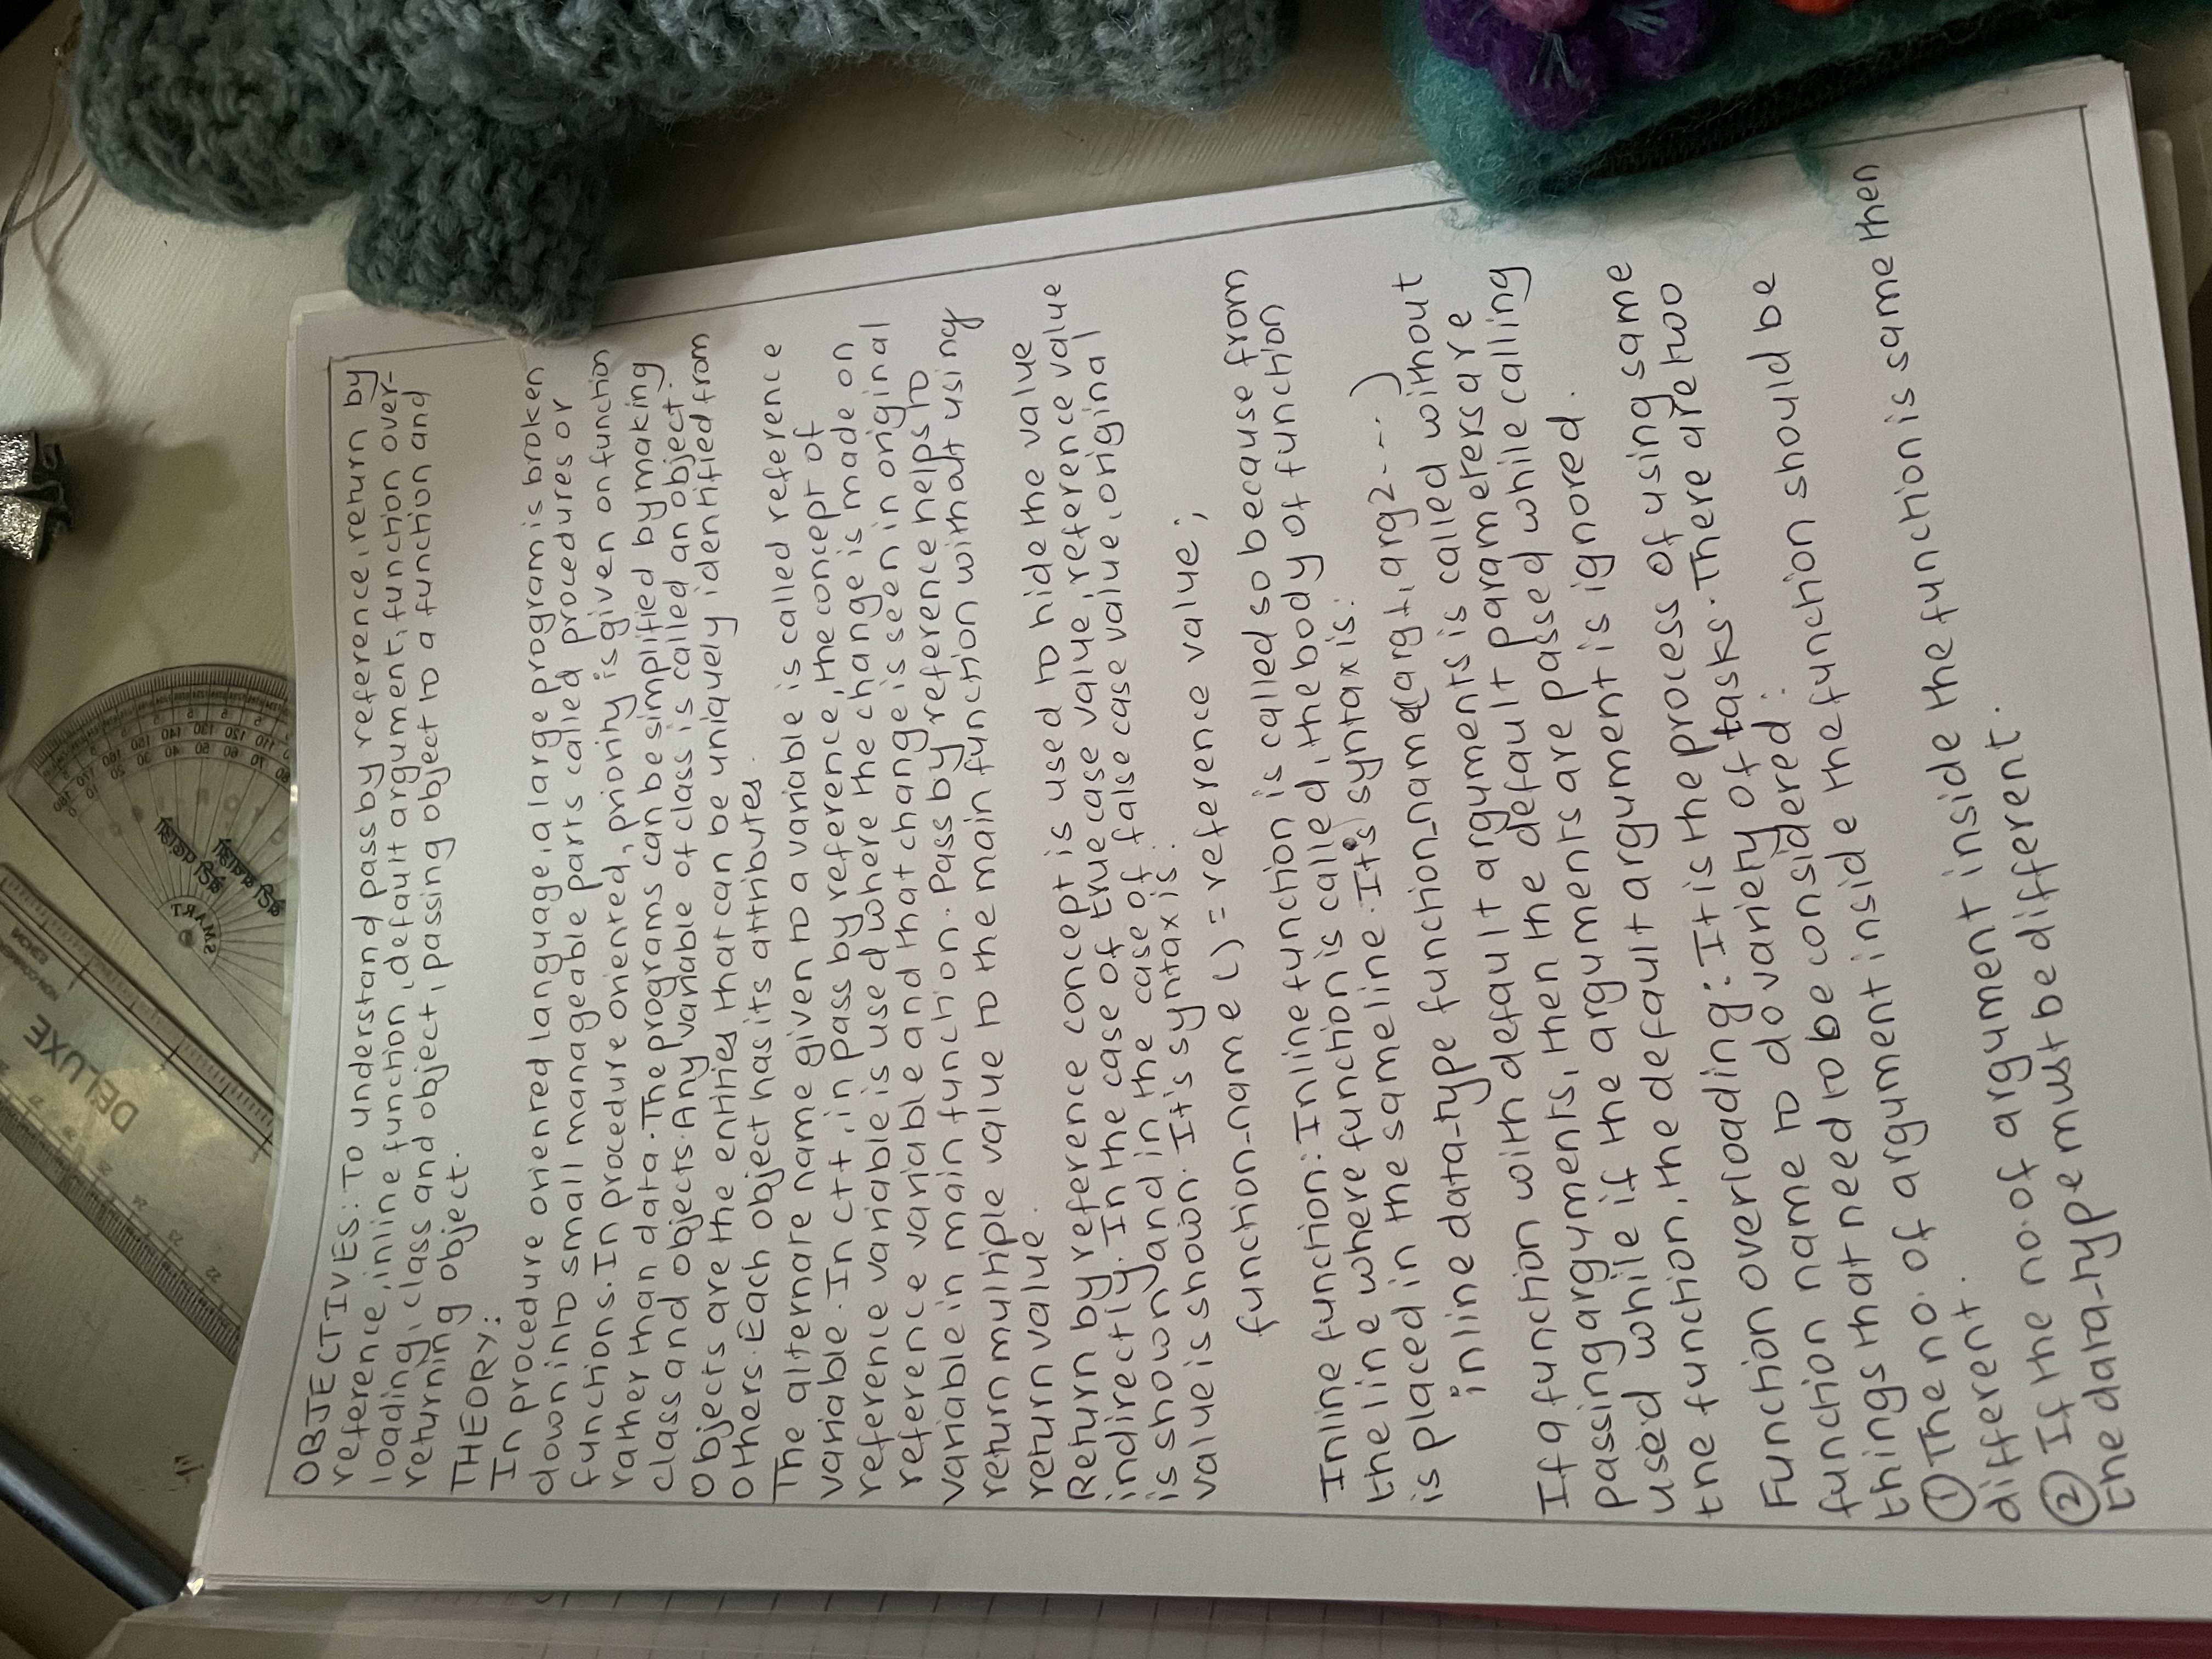 DELUXE
22
23
24
SMART
OBJECTIVES: To understand pass by reference, return by
reference, inline function, default argument, function over-
loading, class and object, passing object to a function and
returning object.
THEORY:
In procedure oriented language, a large program is broken
down into small manageable parts called procedures or
functions. In procedure oriented, priority is given on function
rather than data. The programs can be simplified by making
class and objects. Any variable of class is called an object.
Objects are the entities that can be uniquely identified from
others. Each object has its attributes.
The alternate name given to a variable is called reference
variable. In c++, in pass by reference, the concept of
reference variable is used where the change is made on
reference variable and that change is seen in original
variable in main function. Pass by reference helps to
return multiple value to the main function without using
return value.
Return by reference concept is used to hide the value
indirectly. In the case of true case value, reference value
is shown and in the case of false case value, original
value is shown. It's syntax is:
function_name() = reference value;
Inline function: Inline function is called so because from
the line where function is called, the body of function
is placed in the same line. It's syntax is:
inline data_type function_name(arg1, arg2....)
If a function with default arguments is called without
passing arguments, then the default parameters are
used while if the arguments are passed while calling
the function, the default argument is ignored.
Function overloading: It is the process of using same
function name to do variety of tasks. There are two
things that need to be considered:
① The no. of argument inside the function should be
different.
② If the no. of argument inside the function is same then
the data_type must be different.